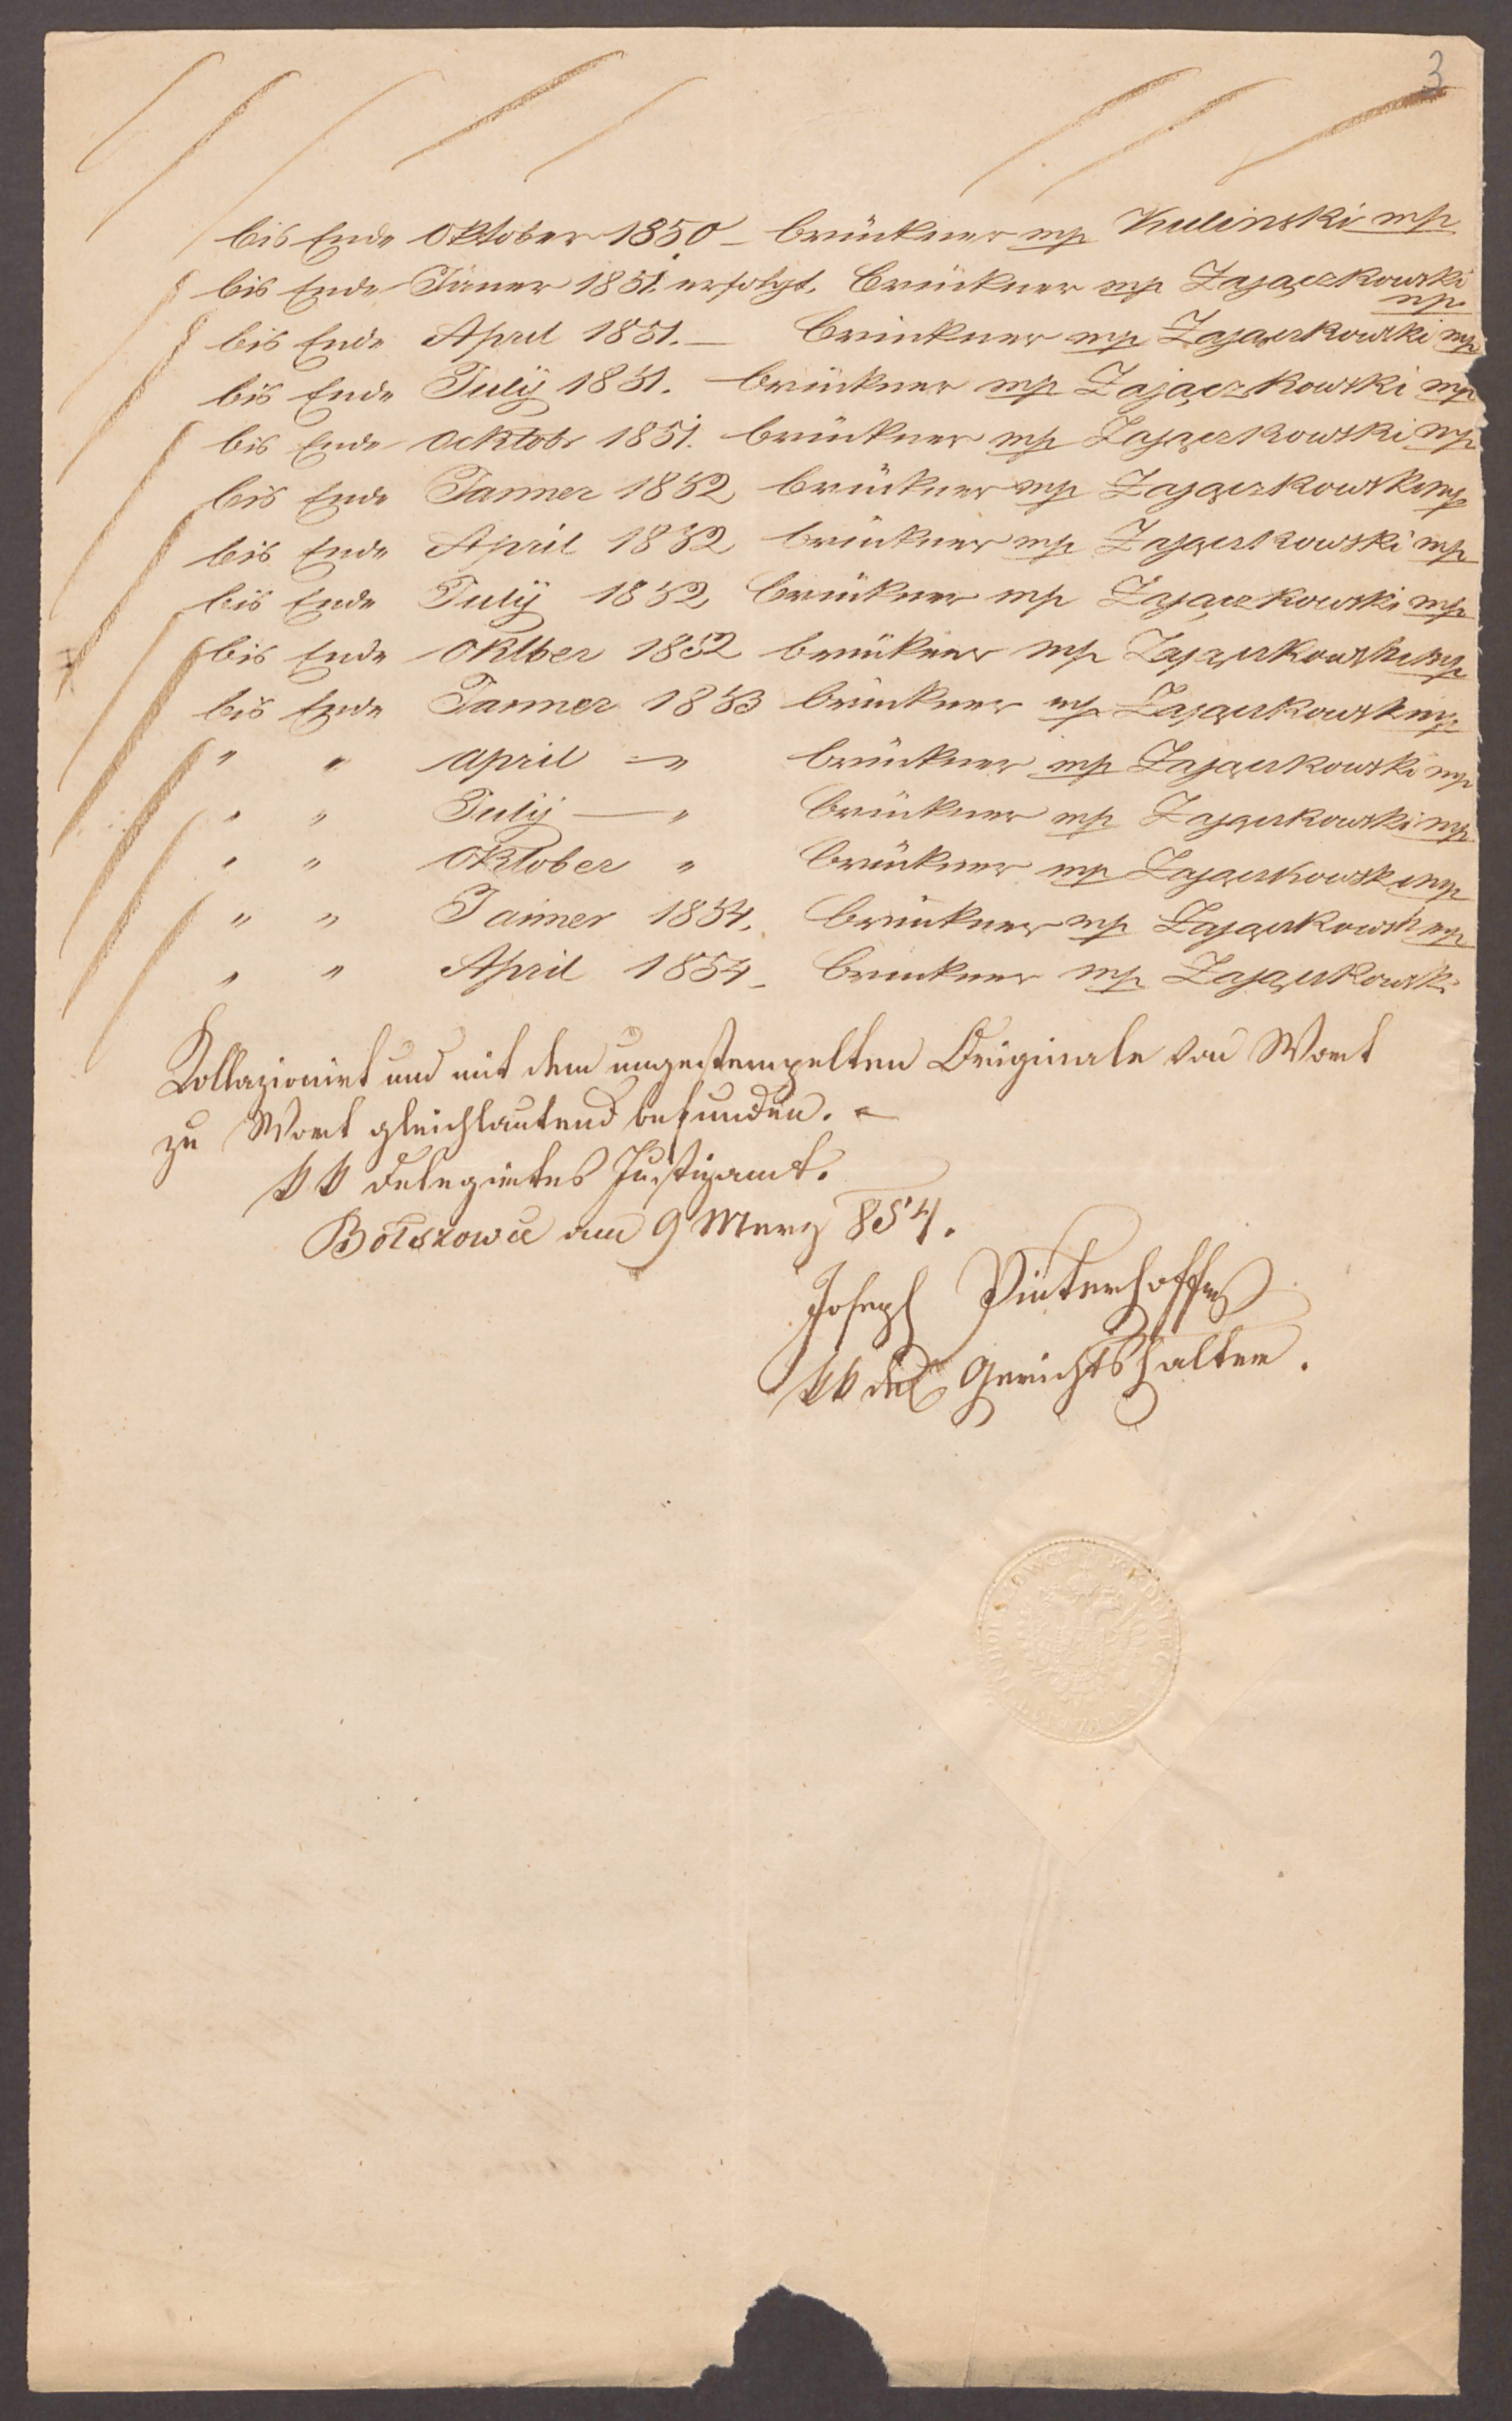 3
bis Ende Oktober 1850 – Brückner mp Kulinski mp
bis Ende Jäner 1851. erfolgt. Brückner mp Zajączkowski
mp
bis Ende April 1851. — Brückner mp Zajączkowski mp
bis Ende Julÿ 1851. Brückner mp Zajączkowski mp
bis Ende Ocktobr 1851. Brückner mp Zajączkowski mp
bis Ende Janner 1852 Brückner mp Zajączkowski mp
bis Ende April 1852 Brückner mp Zajączkowski mp
bis Ende Julÿ 1852 Brückner mp Zajączkowski mp
bis Ende Oktber 1852 Brückner mp Zajączkowski mp
bis Ende Janner 1853 Brückner mp Zajączkowski mp
" " April — " Brückner mp Zajączkowski mp
" " Julÿ — " Brückner mp Zajączkowski mp
" " Oktober " Brückner mp Zajączkowski mp
" " Janner 1854. Brückner mp Zajączkowski mp
" " April 1854 – Brückner mp Zajączkowski
Kollazionirt und mit dem ungestempelten Originale von Wort
zu Wort gleichlautend befunden. –
KK delegirtes Justizamt.
Bołszowce am 9 Merz 854.
Joseph Winterhoffer
KK del Gerichtshalter.